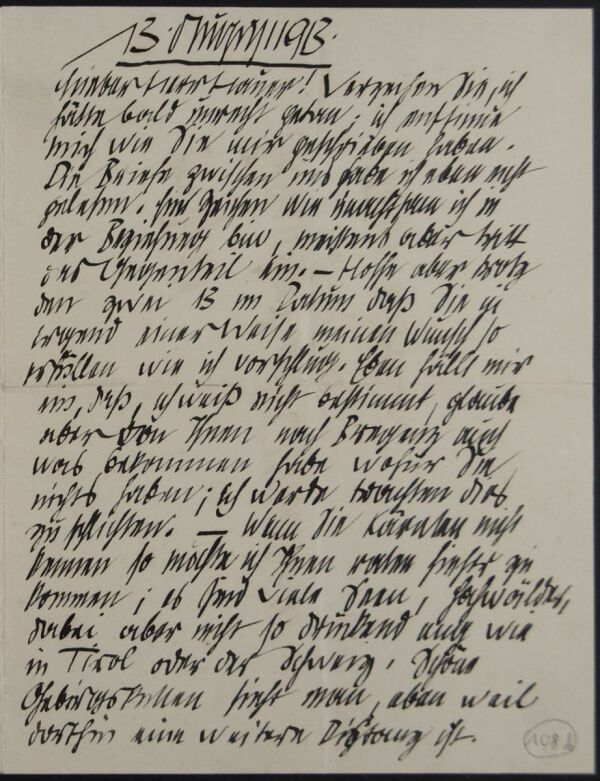 13. August 1913.
Lieber Herr Hauer! Verzeihen Sie, ich
hätte bald unrecht getan; ich entsinne
mich wie Sie mir geschrieben haben.
Die Briefe zwischen uns habe ich eben nicht
gelesen. Ein Zeichen wie ich in
der Beziehung bin, meistens aber tritt
das Gegenteil ein. – Hoffe aber trotz
den zwei 13 im Datum daß Sie in
irgend einer Weise meinen Wunsch so
erfüllen wie ich vorschlug. Eben fällt mir
ein, daß, ich weiß nicht bestimmt, glaube
aber von Ihnen nach Bregenz auch
was bekommen habe wofür Sie
nichts haben; ich werde trachten dies
zu schlichten. – Wenn Sie Kärnten nicht
kennen so möchte ich Ihnen raten hieher zu
kommen; es sind viele Seen, Hochwälder,
dabei aber nicht so drückend eng wie
in Tirol oder der Schweiz. Schöne
Gebirgsketten sieht man, eben weil
dorthin eine weitere Distanz ist.
108